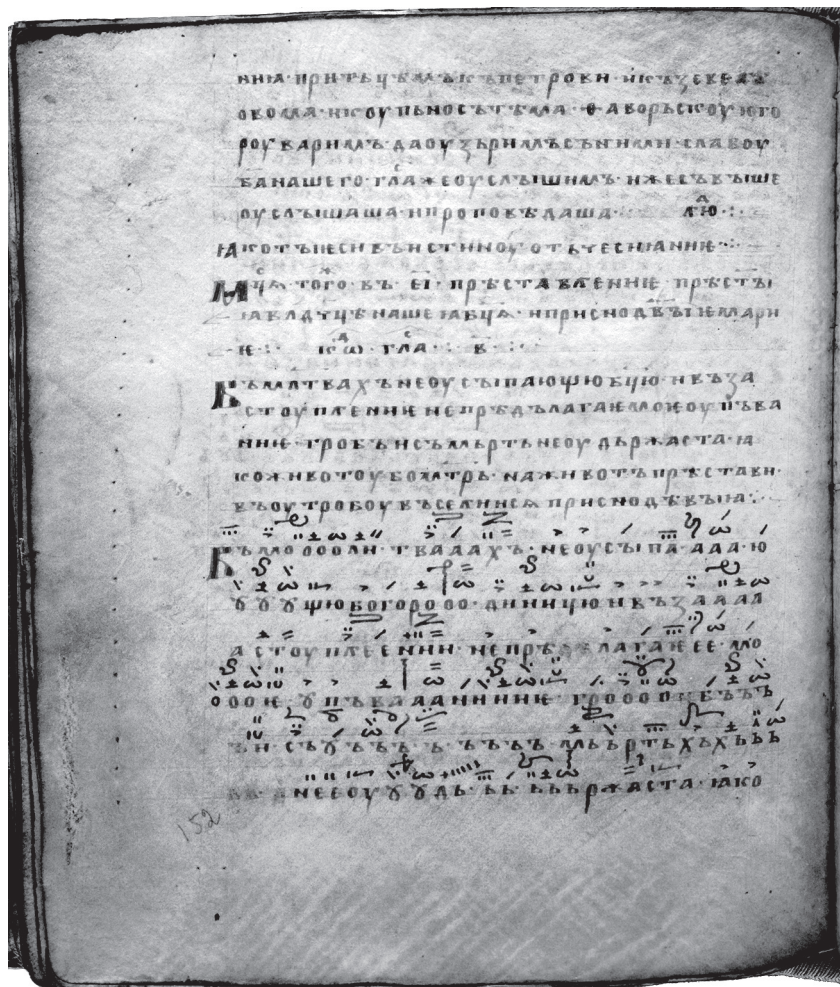 нига· притьцѣмъ къ петрови· и къ ꙁеведъ
овома· и коупьно съ тѣма· ѳаворьскоую го
роу варимъ· да оуꙁьримъ съ ними славоу
ба нашего· гла же оуслꙑшимъ· иже съвꙑше
оуслꙑшаша· и проповѣдаша · лю҃ ·:·
ꙗко тꙑ еси въистиноу отьче сиꙗниѥ ·:·
Мца того· въ · еі· прѣставлениѥ прѣстꙑ
ꙗ влдчцѣ нашеꙗ бцѧ· и приснодвꙑ мари
ѥ·:· ко҃ · гла · в ·:·
Въ млтвахъ неоусꙑпающюю бцю· и въ ꙁа
стоуплениѥ непрѣдълагаѥмоѥ оупъва
ниѥ· гробъ и съмьрть не оудьржаста· ꙗ
ко животоу бо мтрь· на животъ прѣстави·
въ оутробоу въселиисѧ приснодѣвьноу ·:·
Въ моооли· твааахъ· неоусꙑпа· ааа· ю
ꙋ ꙋ ꙋ щю богорооо· диицю и въ ꙁаааа
а стоуплееnии· непрѣдълагаѥ ее· мо
оооѥ· ꙋпъвааанииниѥ гроооообъъъ
ъи съꙋъъъ· ъ· ъъъъ· мььртьхъхъьь
не еоу ꙋ ꙋ дь· ьь· ьььржаста· ꙗко
152